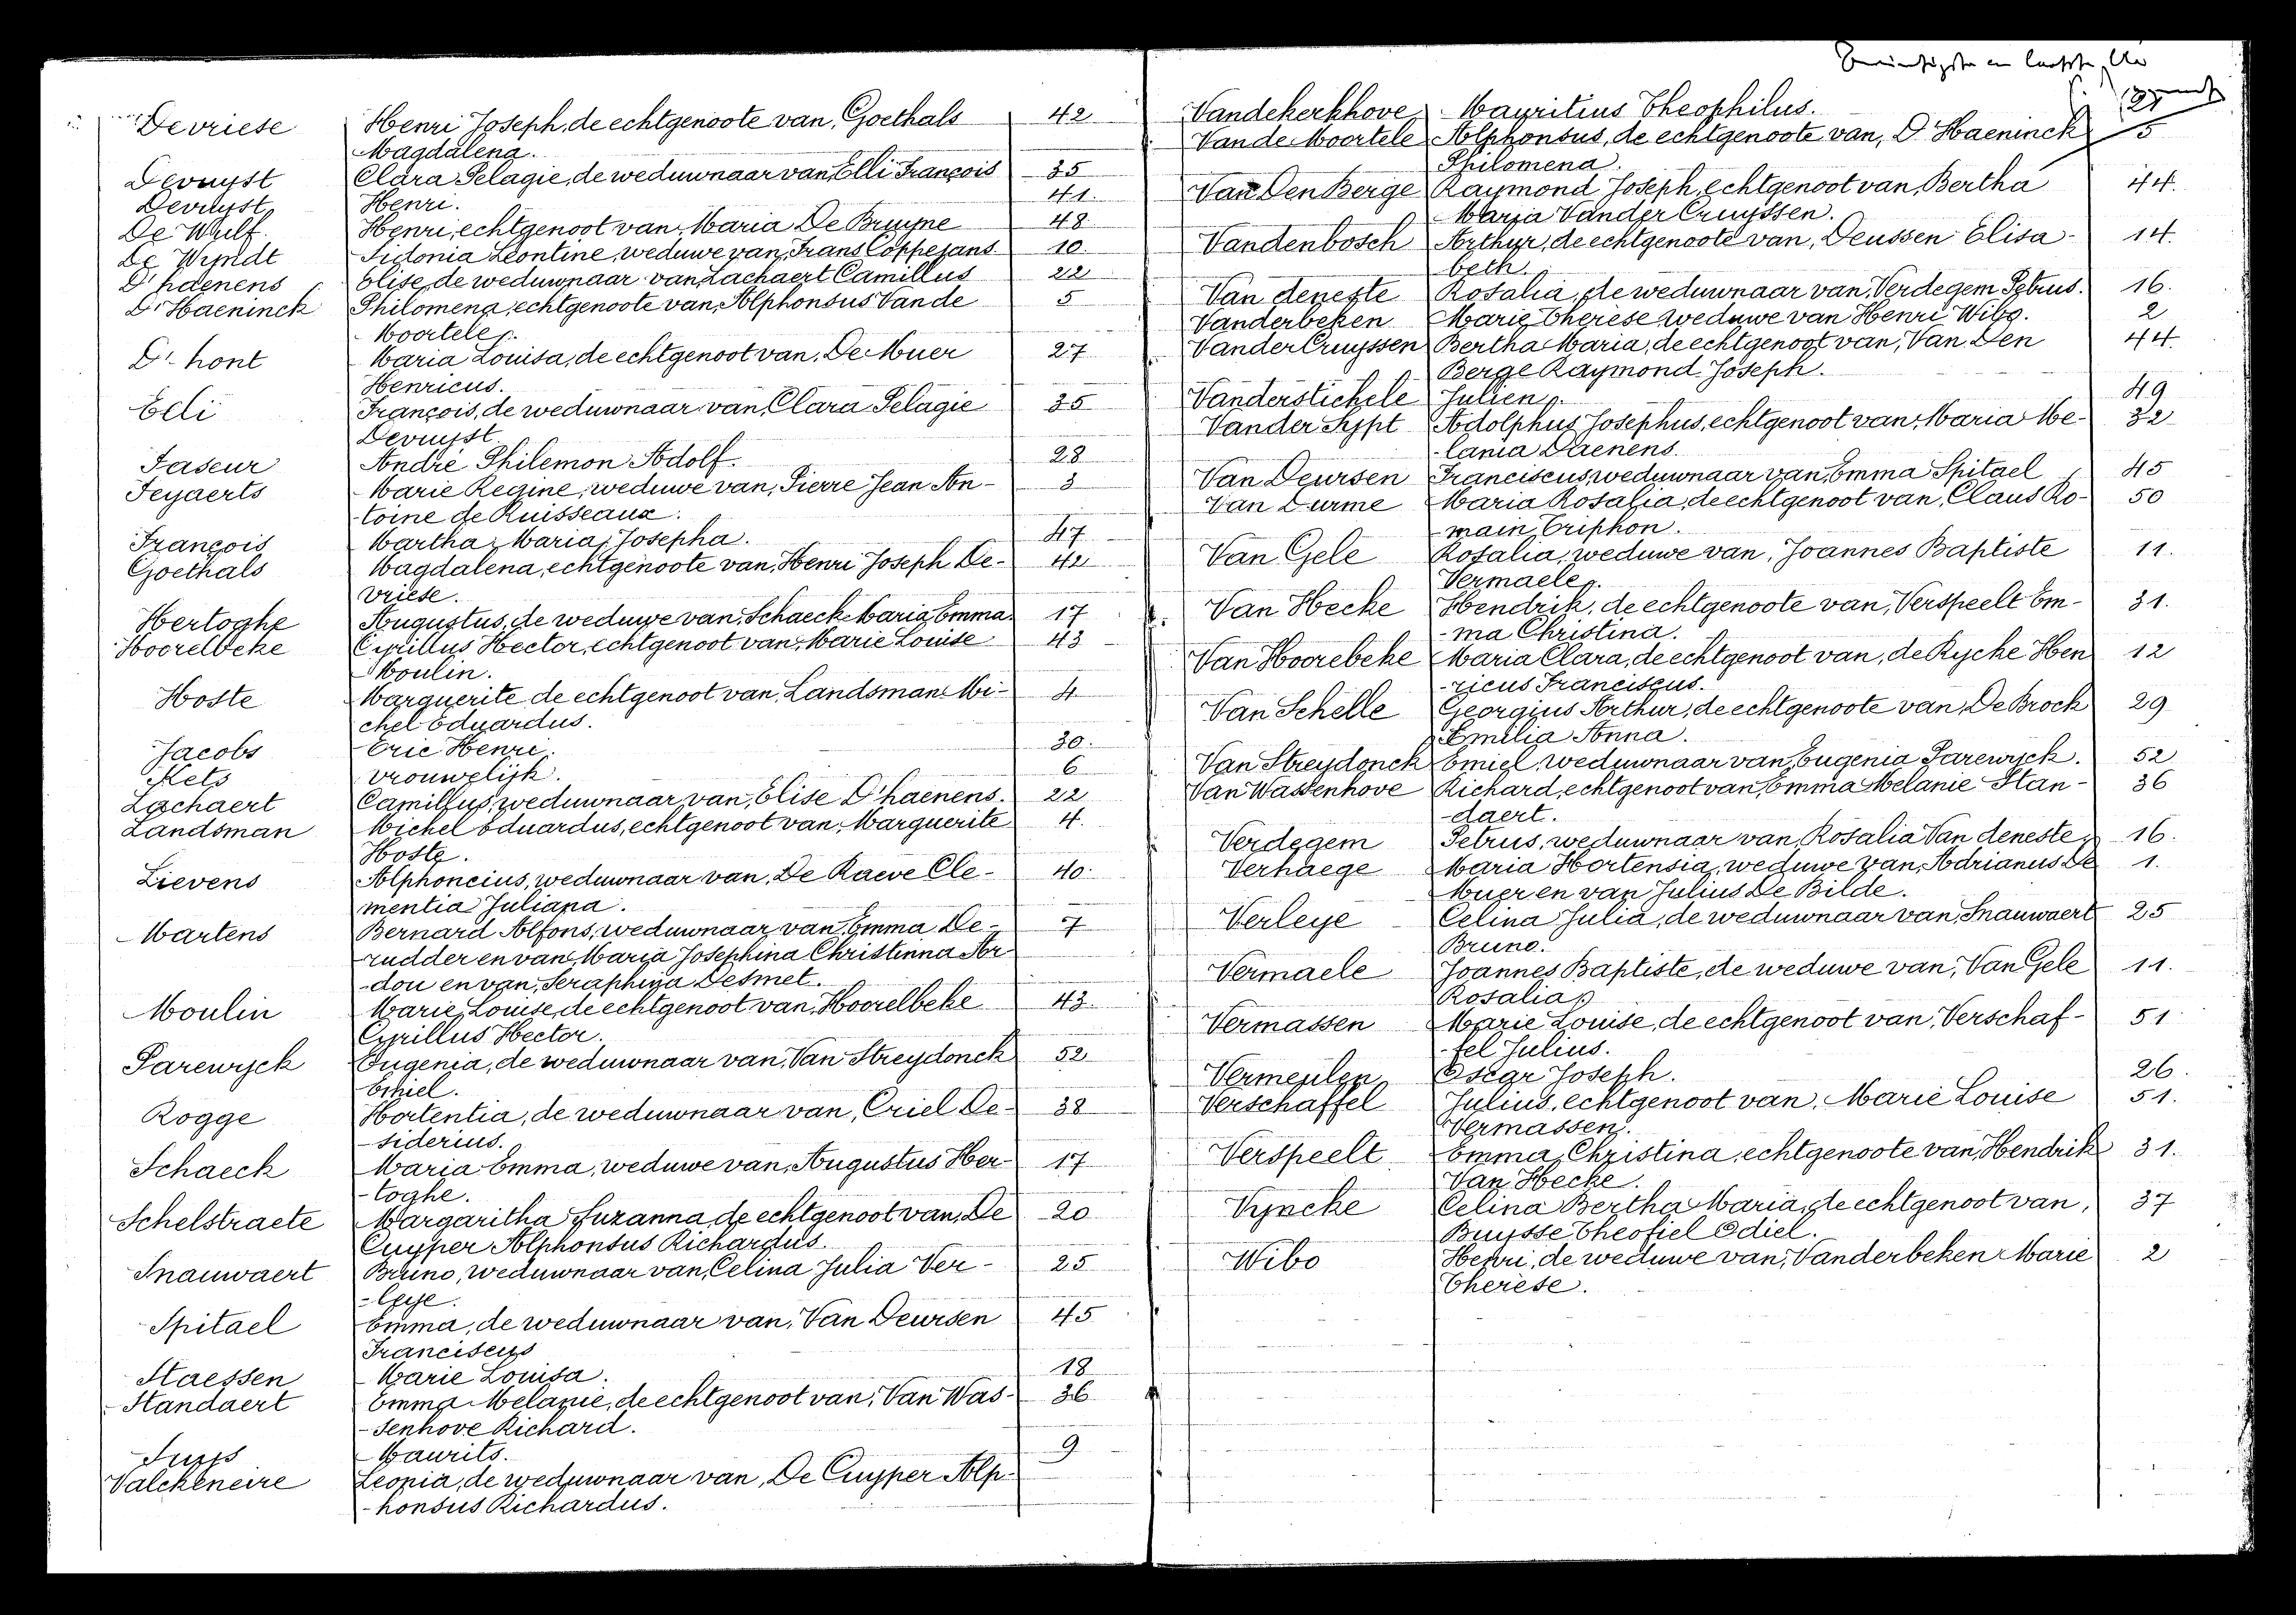 Devriese Henri Joseph, de echtgenoote van, Goethals 42
Magdalena.
Devuyst Clara Pelagie, de weduwnaar van, Elli François 35
Devuyst Henri. 41.
De Wulf. Henri, echtgenoot van, Maria De Bruyne 48
De Wyndt Sidonia Leontine, weduwe van, Frans Coppejans 10.
D'haenens Elise, de weduwnaar van, Lachaert Camillus 22
D'Haeninck Philomena, echtgenoote van, Alphonsus Van de 5
Moortele.
D'hont Maria Louisa, de echtgenoot van, De Muer 27
Henricus.
Elli François, de weduwnaar van, Clara Pelagie 35
Devuyst.
Faseur André Philemon Adolf. 28
Feyaerts Marie Regine, weduwe van, Pierre Jean An- 3
toine de Ruisseaux.
François Martha, Maria, Josepha. 47
Goethals Magdalena, echtgenoote van, Henri Joseph De- 42
vriese.
Hertoghe Augustus, de weduwe van, Schaeck Maria Emma. 17
Hoorelbeke Cyrillus Hector, echtgenoot van, Marie Louise 43
Moulin.
Hoste Marguerite de echtgenoot van, Landsman Mi- 4
chel Eduardus.
Jacobs Eric Henri. 30.
Kets vrouwelijk. 6
Lachaert Camillus, weduwnaar van, Elise D'haenens. 22
Landsman Michel Eduardus, echtgenoot van, Marguerite 4.
Hoste.
Lievens Alphoncius, weduwnaar van, De Raeve Cle- 40.
mentia Juliana.
Martens Bernard Alfons, weduwnaar van, Emma De- 7
rudder en van, Maria Josephina Christinna Ar
-dou en van, Seraphina Desmet.
Moulin Marie, Louise, de echtgenoot van, Hoorelbeke 43.
Cyrillus Hector.
Parewyck Eugenia, de weduwnaar van, Van Streydonck 52
Emiel.
Rogge Hortentia, de weduwnaar van, Criel De- 38
-siderius.
Schaeck Maria Emma, weduwe van, Augustus Her- 17
-toghe.
Schelstraete Margaritha Suzanna, de echtgenoot van, De 20
Cuyper Alphonsus Richardus.
Snauwaert Bruno, weduwnaar van, Celina Julia Ver- 25
-leye.
Spitael Emma, de weduwnaar van, Van Deursen 45
Franciscus
Staessen Marie Louisa. 18
Standaert Emma Melanie, de echtgenoot van, Van Was- 36
-senhove Richard.
Suys Maurits. 9
Valckeneire Leonia, de weduwnaar van, De Cuyper Alp-
-honsus Richardus.
Vandekerkhove Mauritius Theophilus.
Van de Moortele Alphonsus, de echtgenoote van, D'Haeninck 5
Philomena.
Van Den Berge Raymond Joseph, echtgenoot van, Bertha 44.
Maria Vander Cruyssen.
Vandenbosch Arthur, de echtgenoote van, Deussen Elisa- 14.
beth.
Van deneste Rosalia, de weduwnaar van, Verdegem Petrus. 16.
Vanderbeken Marie Therese weduwe van Henri Wibo. 2
Vander Cruyssen Bertha Maria, de echtgenoot van, Van Den 44.
Berge Raymond Joseph.
Vanderstichele Julien. 49
Vander Sypt Adolphus Josephus, echtgenoot van, Maria Me- 32
lania Daenens.
Van Deursen Franciscus, weduwnaar van, Emma Spitael 45
Van Durme Maria Rosalia, de echtgenoot van, Claus Ro- 50
-main Triphon.
Van Gele Rosalia, weduwe van, Joannes Baptiste 11.
Vermaele.
Van Hecke Hendrik, de echtgenoote van, Verspeelt Em- 31.
-ma Christina.
Van Hoorebeke Maria Clara, de echtgenoot van, de Rycke Hen 12
-ricus Franciscus.
Van Schelle Georgius Arthur, de echtgenoote van, De Brock 29
Emilia Anna.
Van Streydonck Emiel, weduwnaar van, Eugenia Parewyck. 52
Van Wassenhove Richard, echtgenoot van, Emma Melanie Stan- 36
-daert.
Verdegem Petrus, weduwnaar van, Rosalia Van deneste. 16.
Verhaege Maria Hortensia, weduwe van, Adrianus De 1.
Muer en van Julius De Bilde.
Verleye Celina Julia, de weduwnaar van, Snauwaert 25
Bruno.
Vermaele Joannes Baptiste, de weduwe van, Van Gele 11.
Rosalia.
Vermassen Marie Louise, de echtgenoot van, Verschaf- 51
-fel Julius.
Vermeulen Oscar Joseph. 26.
Verschaffel Julius, echtgenoot van, Marie Louise 51.
Vermassen.
Verspeelt Emma, Christina, echtgenoote van, Hendrik 31.
Van Hecke.
Vyncke Celina Bertha Maria, de echtgenoot van, 37
Buysse Theofiel Odiel.
Wibo Henri, de weduwe van, Vanderbeken Marie 2
Therese.